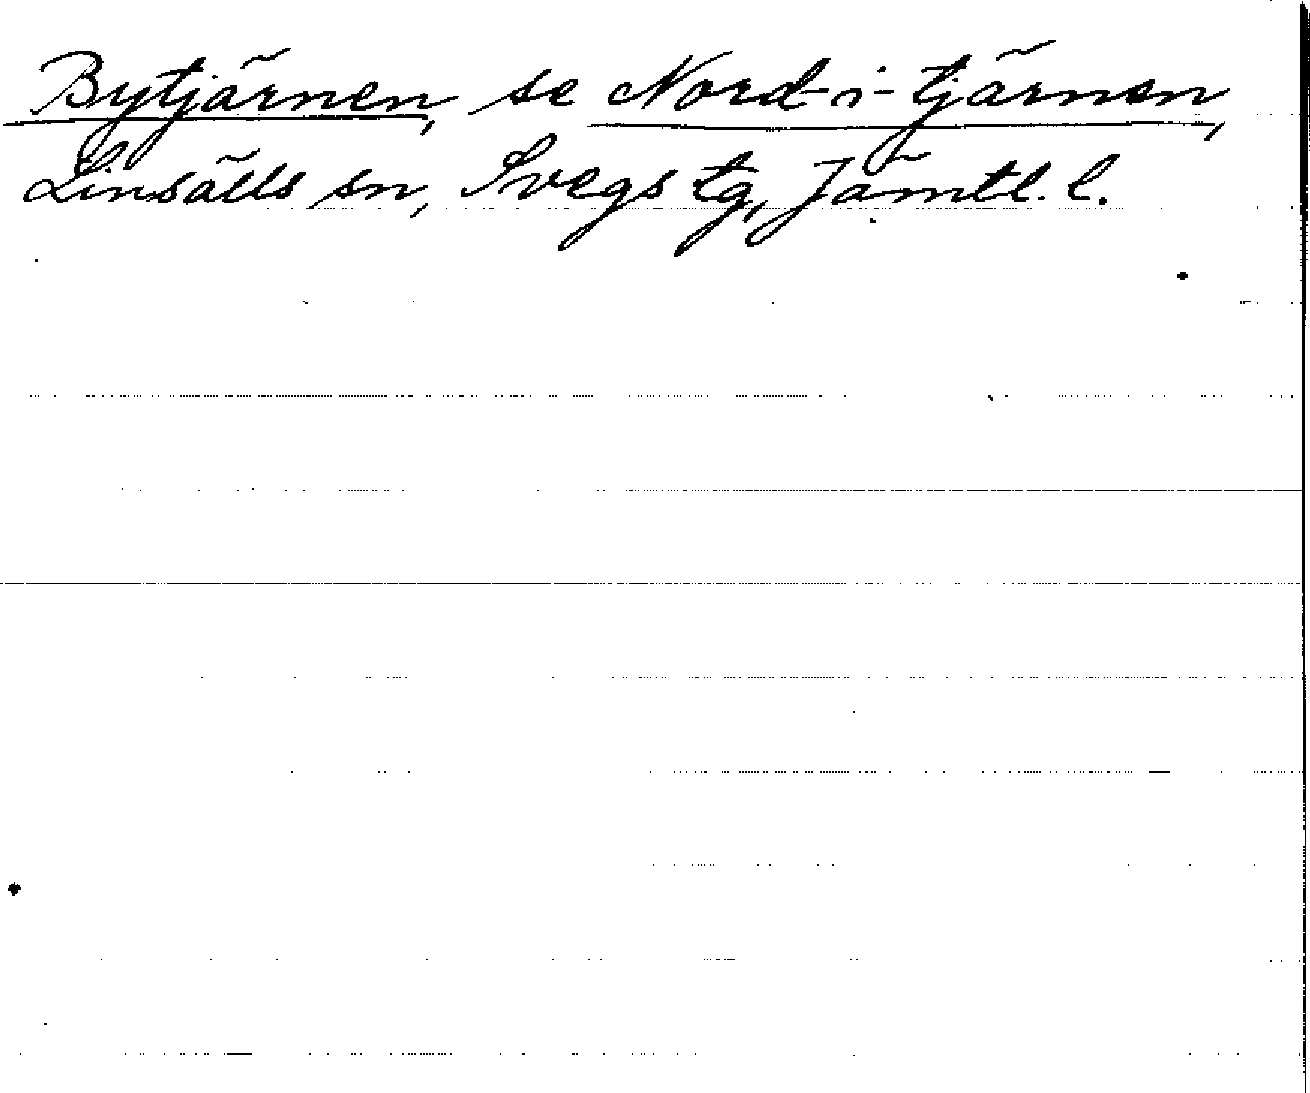 Bytjärnen, se Nord-i-tjärnen,
Linsälls sn, Svegs tg, Jämtl. l.